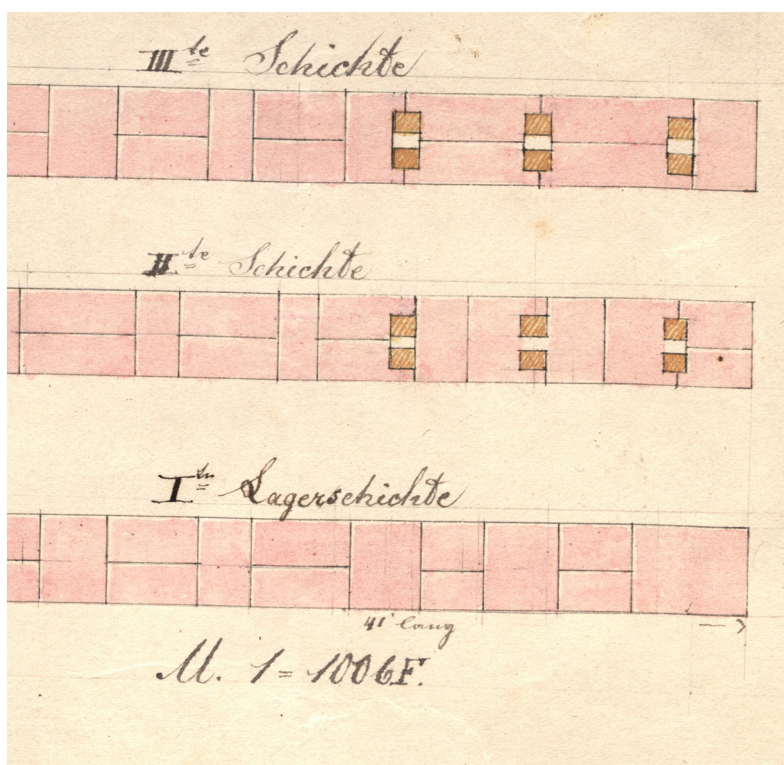 IIIte Schichte
IIte Schichte
Ite Lagerschichte
41' lang
M. 1 = 1006F.